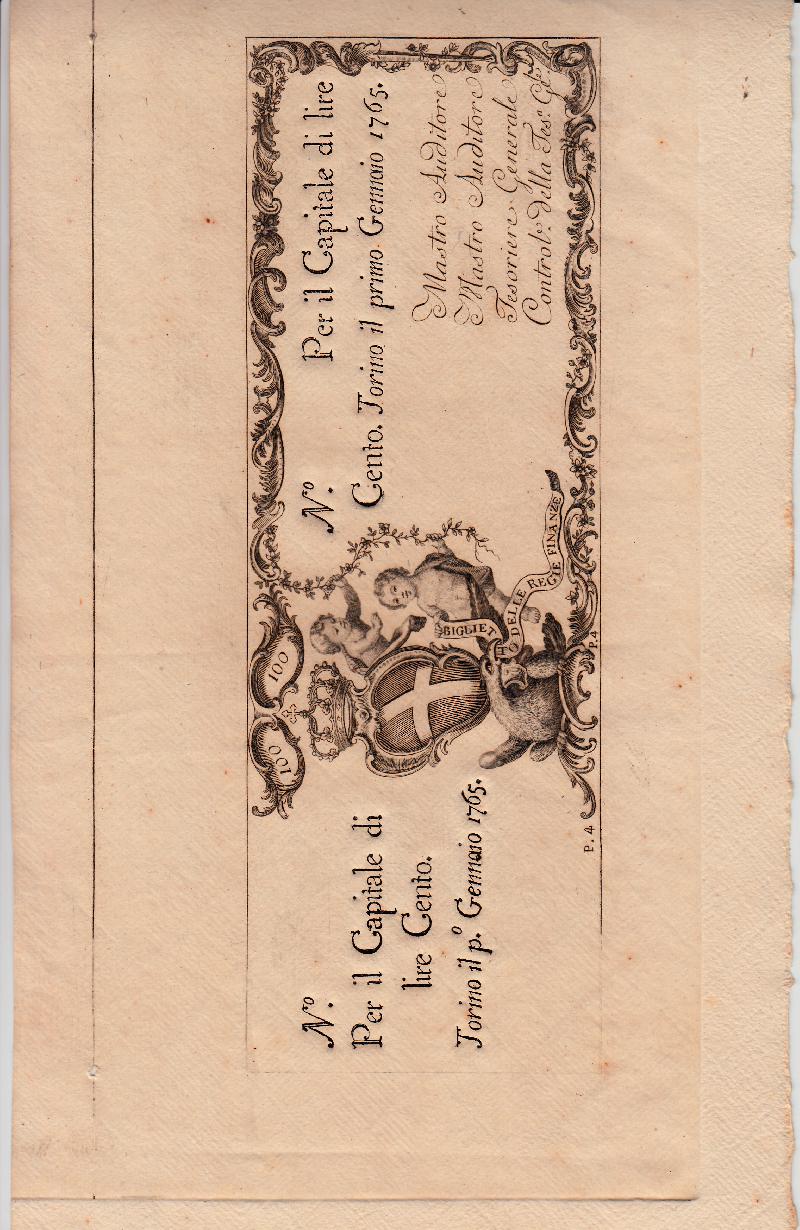 N.º
Per il Capitale di
lire Cento.
Torino il p.º Gennaio 1765.
100
100
BIGLIETTO DELLE REGIE FINANZE
N.º Per il Capitale di lire
Cento. Torino il primo Gennaio 1765.
Mastro Auditore
Mastro Auditore
Tesoriere Generale
Control.e della Tes.a G.le
P. 4
P.4